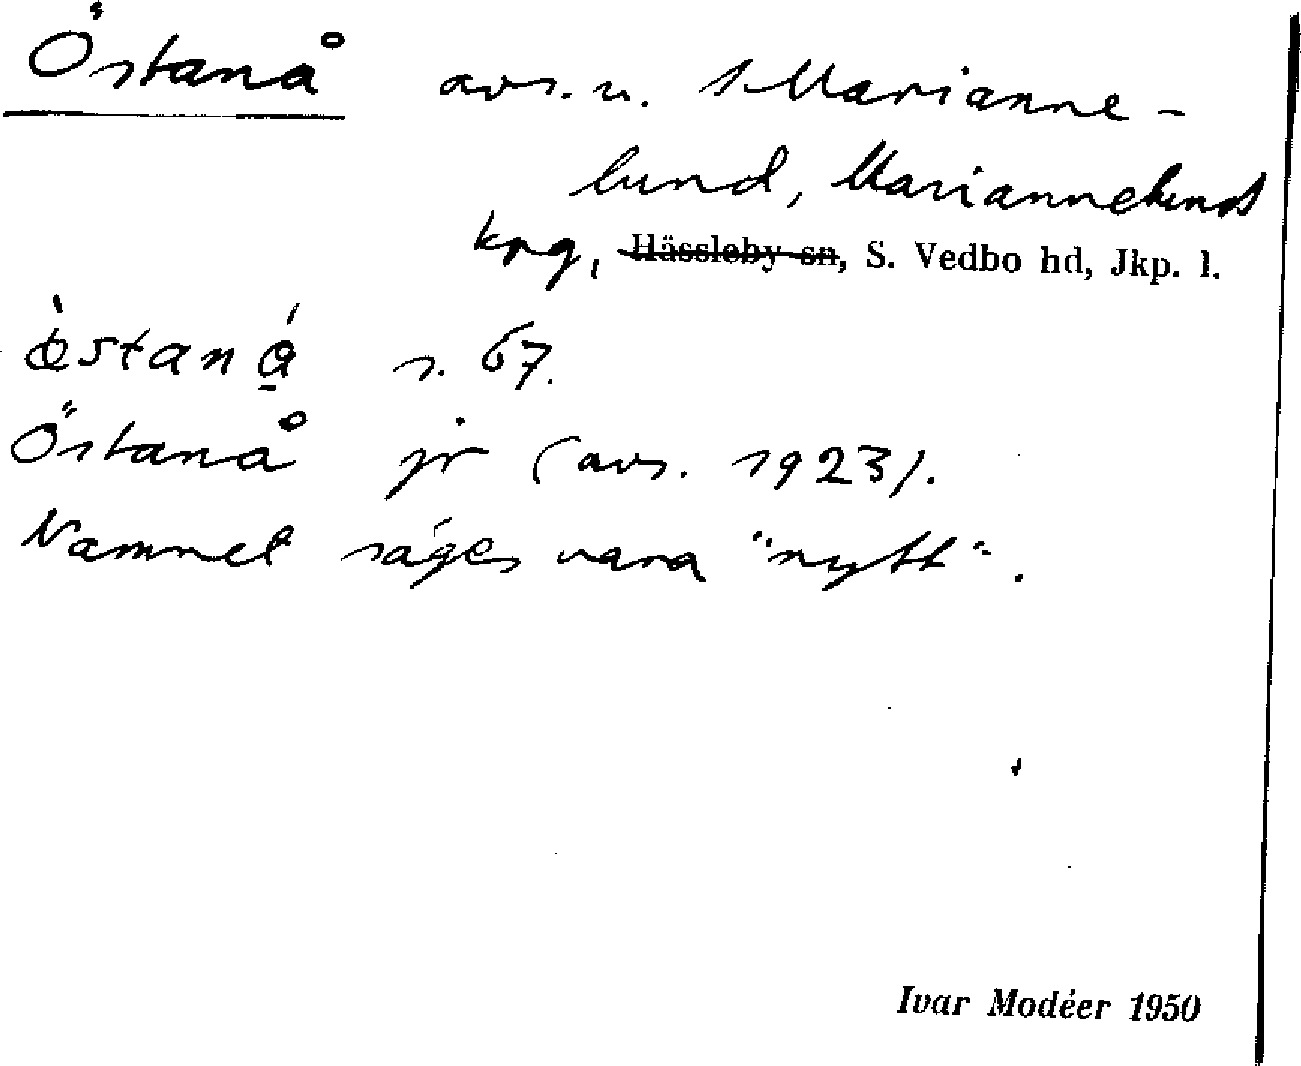 Östanå avs. u. 1 Marianne-
lund, Mariannelunds
kpg, Hässleby sn, S. Vedbo hd, Jkp. l.
œ̀staną́ s. 67.
Östanå jr (avs. 1923).
Namnet säges vara "nytt".
Ivar Modéer 1950